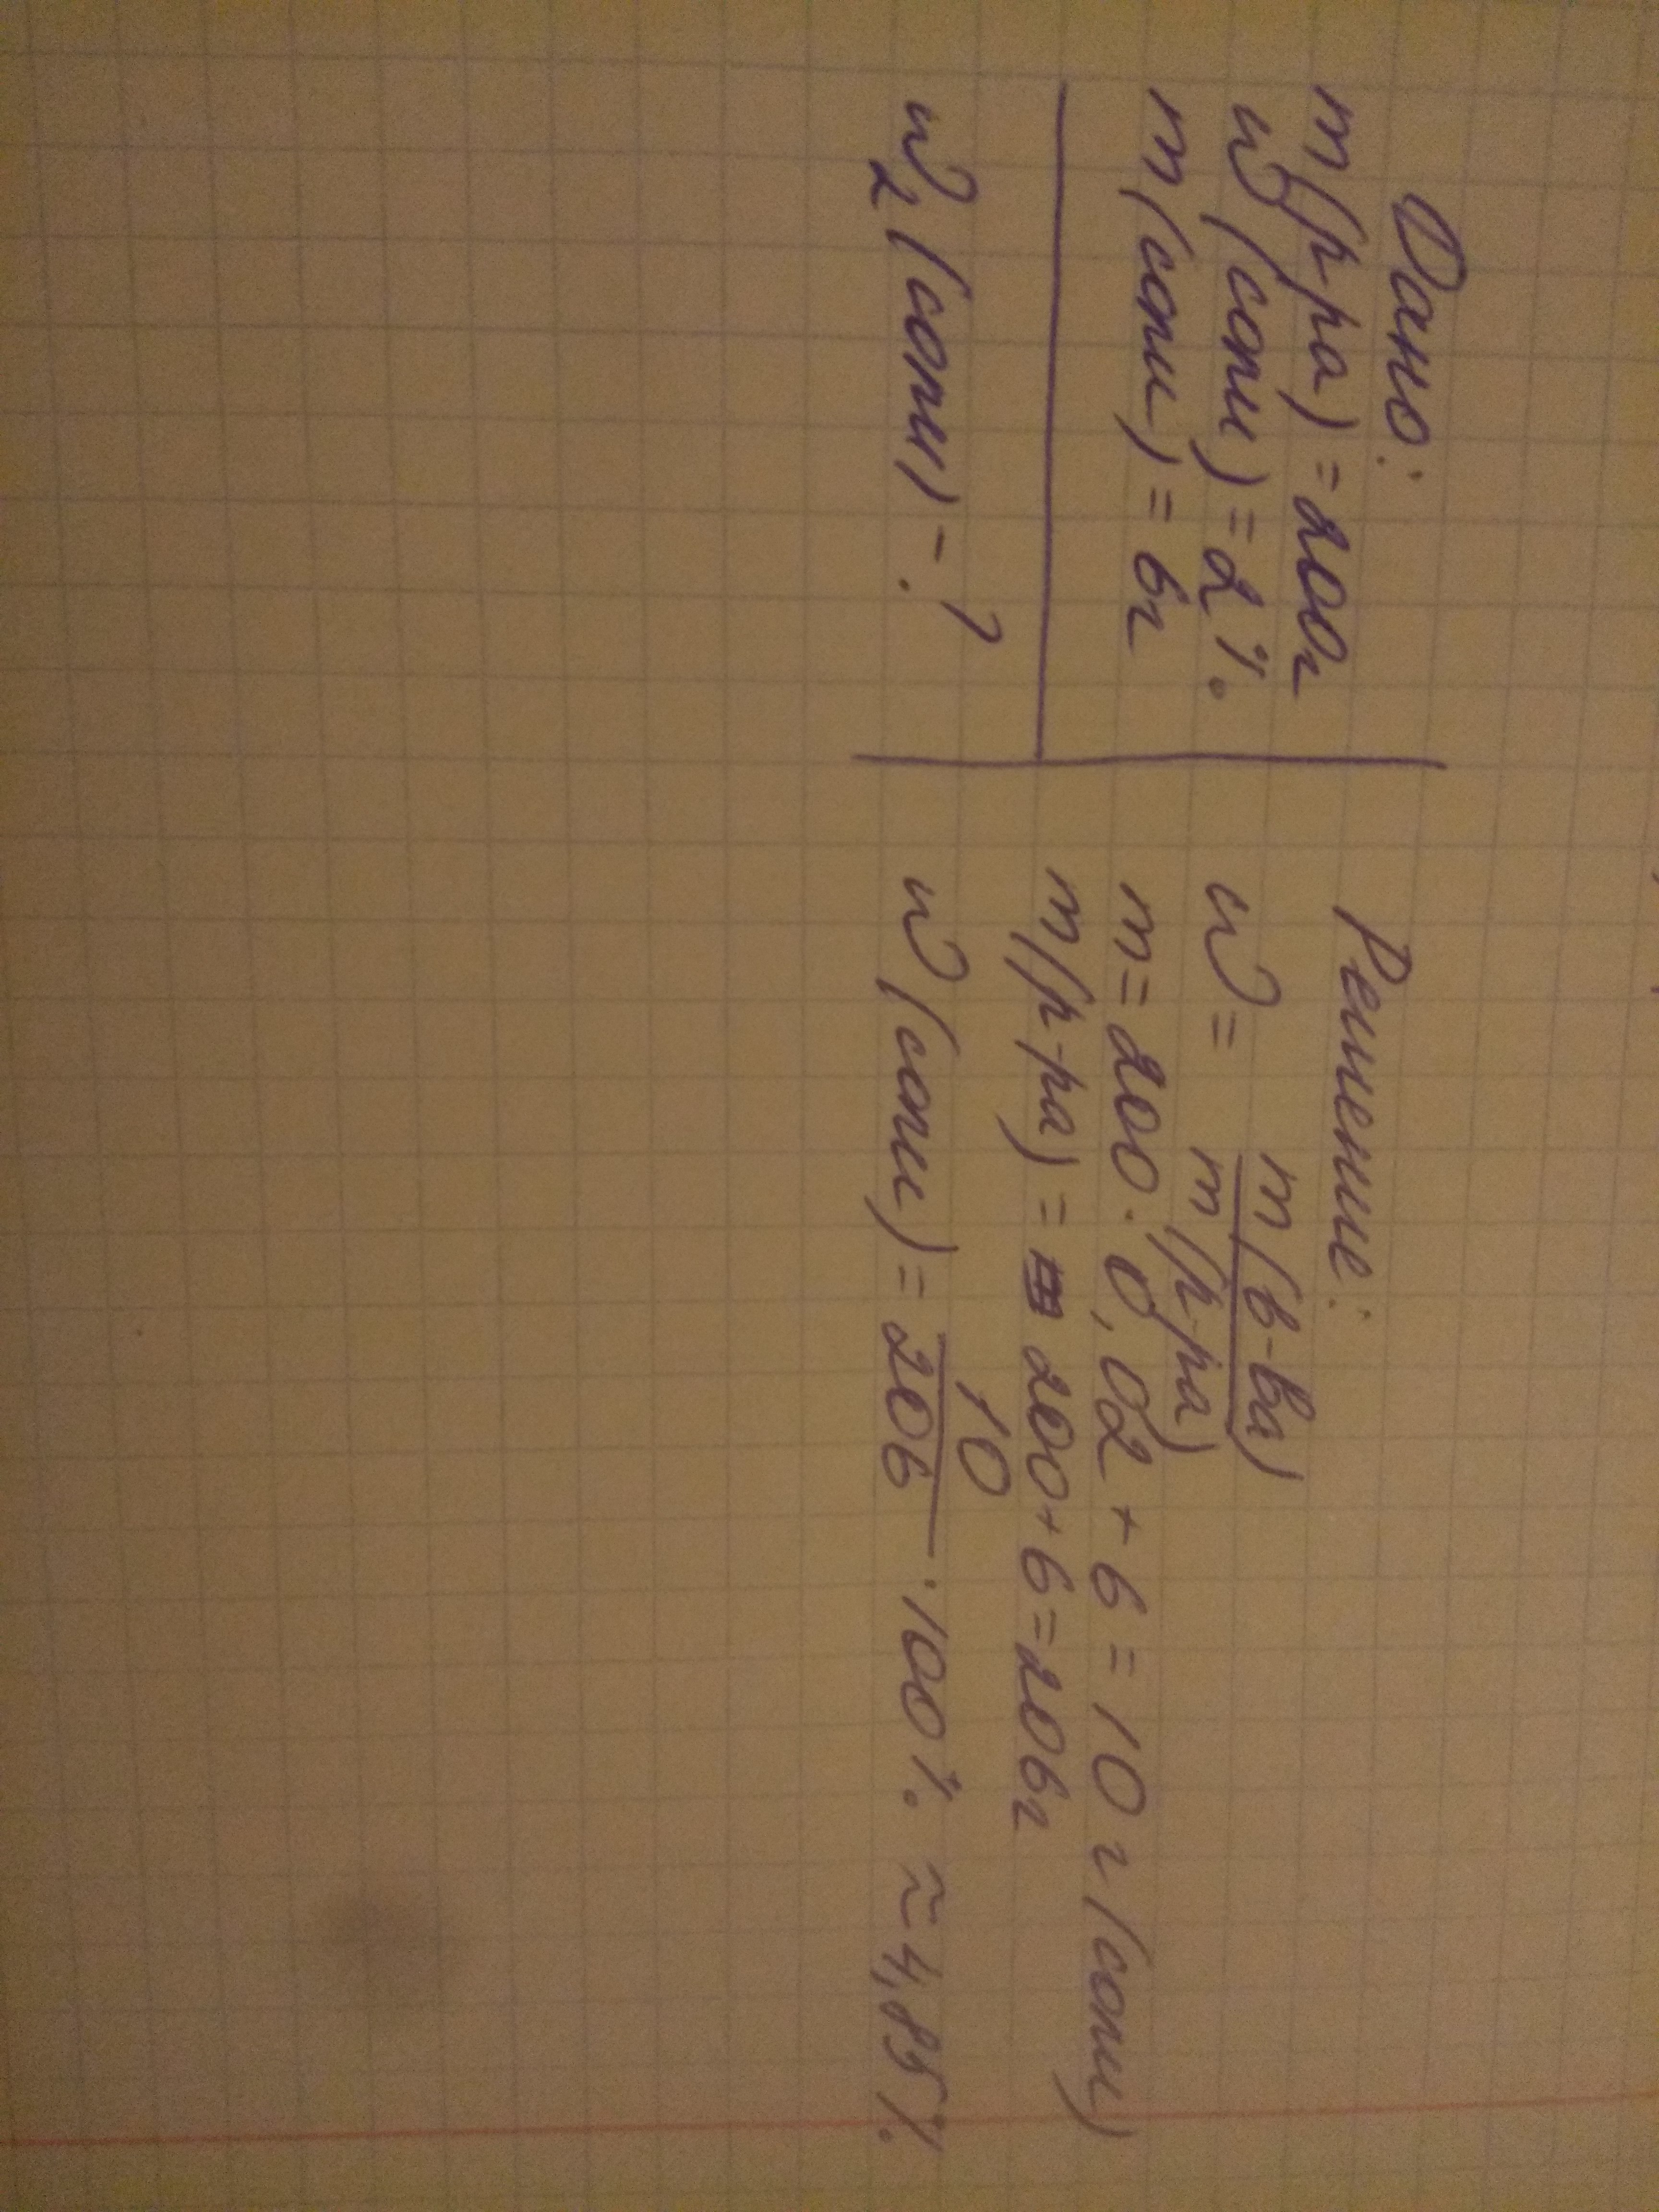 Дано:
m(р-ра) = 200г
w(соли) = 2%
m(соли) = 6г
w₂(соли) - ?
Решение:
w = m(в-ва) / m(р-ра)
m = 200 · 0,02 + 6 = 10 г (соли)
m(р-ра) = 200 + 6 = 206г
w(соли) = 10 / 206 · 100% ≈ 4,85%